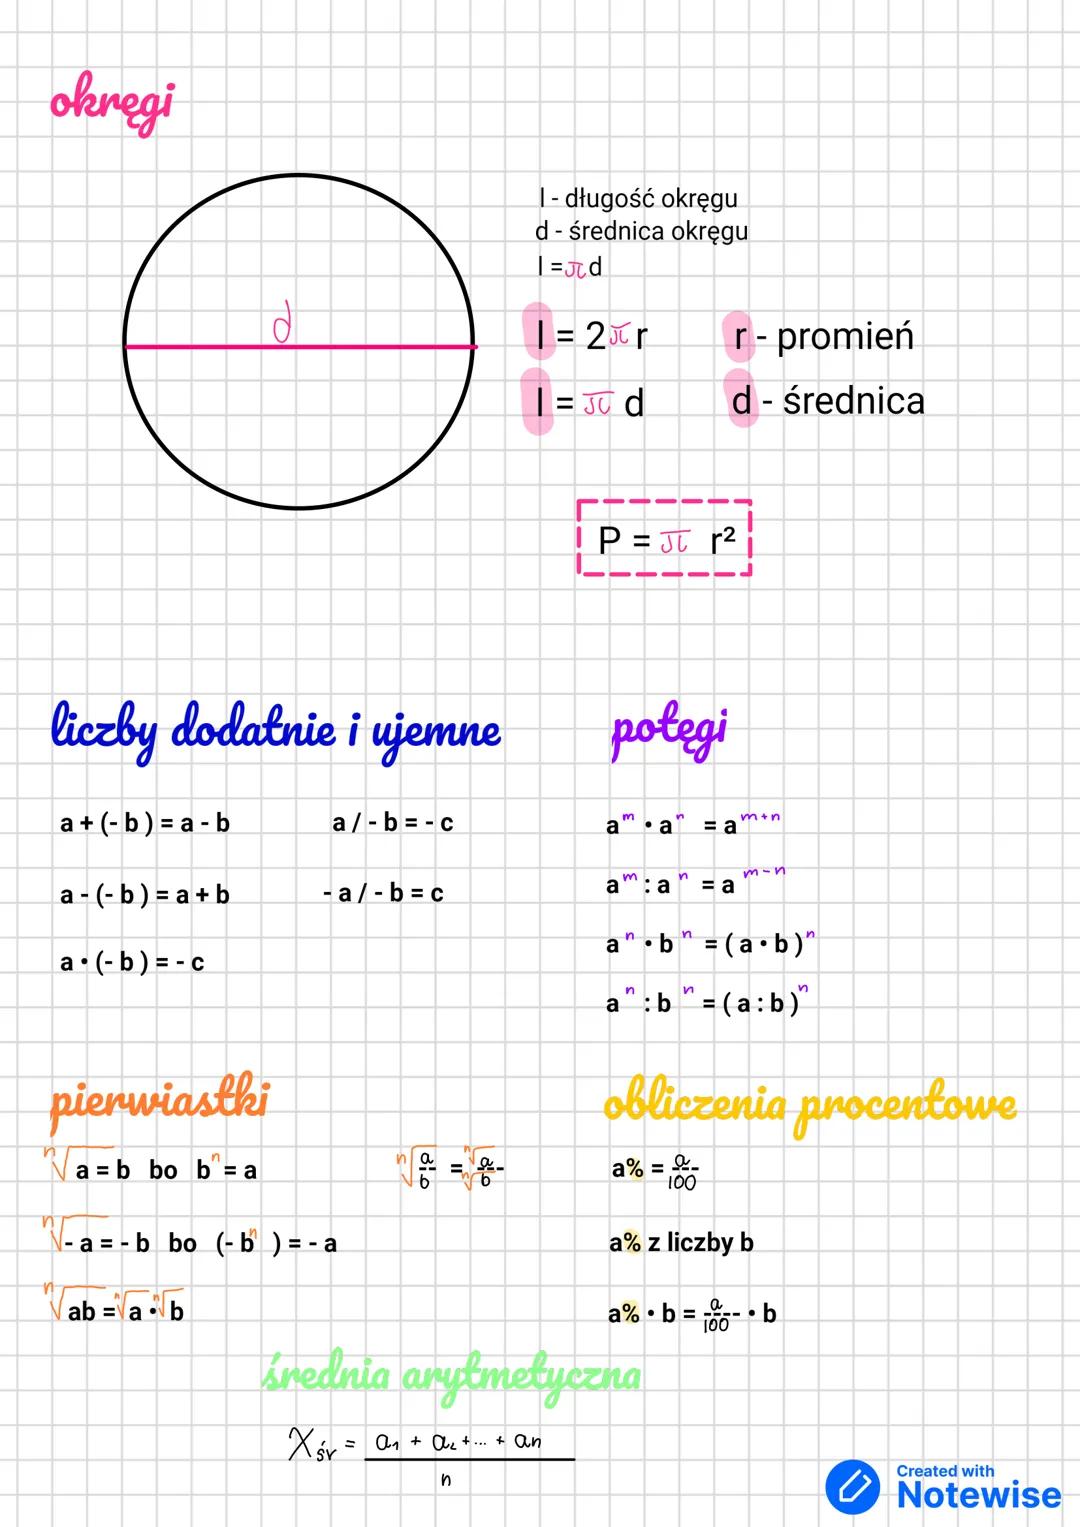 okręgi
d
l - długość okręgu
d - średnica okręgu
l = π d
l = 2 π r
r - promień
l = π d
d - średnica
P = π r²
liczby dodatnie i ujemne
a + (- b ) = a - b
a / - b = - c
a - (- b ) = a + b
- a / - b = c
a • (- b ) = - c
potęgi
aᵐ • aⁿ = aᵐ⁺ⁿ
aᵐ : aⁿ = aᵐ⁻ⁿ
aⁿ • bⁿ = ( a • b )ⁿ
aⁿ : bⁿ = ( a : b )ⁿ
pierwiastki
ⁿ√a = b bo bⁿ = a
ⁿ√(a/b) = ⁿ√a / ⁿ√b
ⁿ√- a = - b bo (- bⁿ ) = - a
ⁿ√ab = ⁿ√a • ⁿ√b
obliczenia procentowe
a% = a/100
a% z liczby b
a% • b = a/100 • b
średnia arytmetyczna
X śr = a₁ + a₂ + ... + an
n
Created with
Notewise